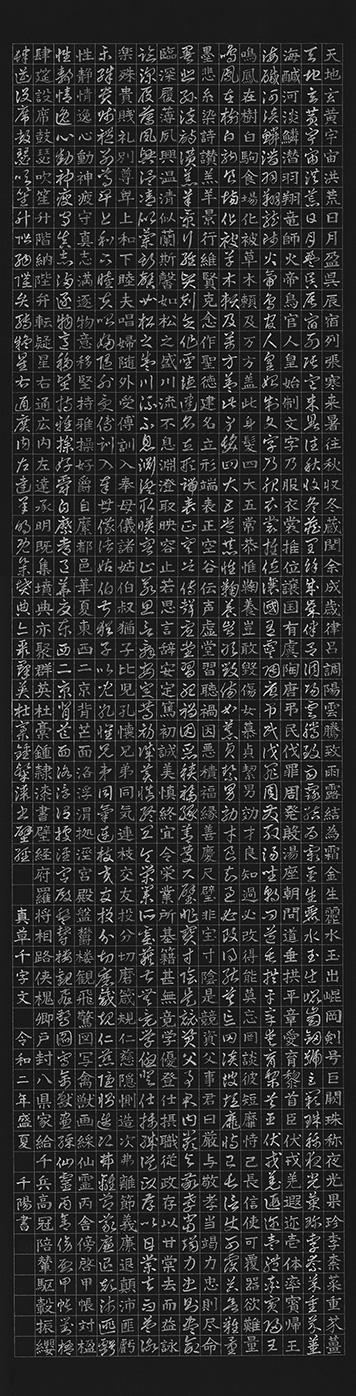 天地玄黄宇宙洪荒日月盈昃辰宿列張寒来暑往秋収冬蔵閏余成歳律呂調陽雲騰致雨露結為霜金生麗水玉出崐岡剣号巨闕珠称夜光果珍李柰菜重芥薑
天地玄黄宇宙洪荒日月盈昃辰宿列張寒来暑往秋収冬蔵閏余成歳律呂調陽雲騰致雨露結為霜金生麗水玉出崐岡剣号巨闕珠称夜光果珍李柰菜重芥薑
海鹹河淡鱗潜羽翔竜師火帝鳥官人皇始制文字乃服衣裳推位譲国有虞陶唐弔民伐罪周発殷湯座朝問道垂拱平章愛育黎首臣伏戎羌遐邇壱体率賓帰王
海鹹河淡鱗潜羽翔竜師火帝鳥官人皇始制文字乃服衣裳推位譲国有虞陶唐弔民伐罪周発殷湯座朝問道垂拱平章愛育黎首臣伏戎羌遐邇壱体率賓帰王
鳴鳳在樹白駒食場化被草木頼及万方蓋此身髪四大五常恭惟鞠養豈敢毀傷女慕貞絜男効才良知過必改得能莫忘罔談彼短靡恃己長信使可覆器欲難量
鳴鳳在樹白駒食場化被草木頼及万方蓋此身髪四大五常恭惟鞠養豈敢毀傷女慕貞絜男効才良知過必改得能莫忘罔談彼短靡恃己長信使可覆器欲難量
墨悲糸染詩讃羔羊景行維賢克念作聖徳建名立形端表正空谷伝声虚堂習聴禍因悪積福縁善慶尺璧非宝寸陰是競資父事君曰厳与敬孝当竭力忠則尽命
墨悲糸染詩讃羔羊景行維賢克念作聖徳建名立形端表正空谷伝声虚堂習聴禍因悪積福縁善慶尺璧非宝寸陰是競資父事君曰厳与敬孝当竭力忠則尽命
臨深履薄夙興温清似蘭斯馨如松之盛川流不息淵澄取映容止若思言辞安定篤初誠美慎終宜令栄業所基籍甚無竟学優登仕摂職従政存以甘棠去而益詠
臨深履薄夙興温清似蘭斯馨如松之盛川流不息淵澄取映容止若思言辞安定篤初誠美慎終宜令栄業所基籍甚無竟学優登仕摂職従政存以甘棠去而益詠
楽殊貴賤礼別尊卑上和下睦夫唱婦随外受傅訓入奉母儀諸姑伯叔猶子比児孔懐兄弟同気連枝交友投分切磨箴規仁慈隠惻造次弗離節義廉退顛沛匪虧
楽殊貴賤礼別尊卑上和下睦夫唱婦随外受傅訓入奉母儀諸姑伯叔猶子比児孔懐兄弟同気連枝交友投分切磨箴規仁慈隠惻造次弗離節義廉退顛沛匪虧
性静情逸心動神疲守真志満逐物意移堅持雅操好爵自縻都邑華夏東西二京背芒面洛浮渭拠涇宮殿盤鬱楼観飛驚図写禽獣画綵仙霊丙舎傍啓甲帳対楹
性静情逸心動神疲守真志満逐物意移堅持雅操好爵自縻都邑華夏東西二京背芒面洛浮渭拠涇宮殿盤鬱楼観飛驚図写禽獣画綵仙霊丙舎傍啓甲帳対楹
肆筵設席鼓瑟吹笙升階納陛弁転疑星右通広内左達承明既集墳典亦聚群英杜稾鍾隷漆書壁経府羅将相路侠槐卿戸封八県家給千兵高冠陪輦駆轂振纓
肆筵設席鼓瑟吹笙升階納陛弁転疑星右通広内左達承明既集墳典亦聚群英杜稾鍾隷漆書壁経 真草千字文 令和二年盛夏 千陽書